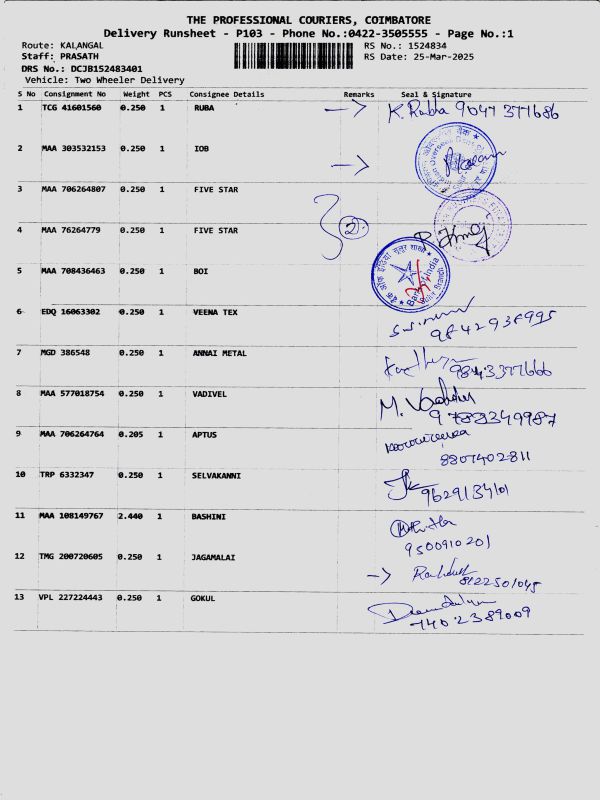 THE PROFESSIONAL COURIERS, COIMBATORE
Delivery Runsheet - P103 - Phone No.:0422-3505555 - Page No.:1
Route: KALANGAL RS No.: 1524834
Staff: PRASATH RS Date: 25-Mar-2025
DRS No.: DCJB152483401
Vehicle: Two Wheeler Delivery
S No Consignment No Weight PCS Consignee Details Remarks Seal & Signature
1 TCG 41601560 0.250 1 RUBA K. Rubha 9047 377686
2 MAA 303532153 0.250 1 IOB
3 MAA 706264807 0.250 1 FIVE STAR
4 MAA 76264779 0.250 1 FIVE STAR 2
5 MAA 708436463 0.250 1 BOI Bank of India
6 EDQ 16063302 0.250 1 VEENA TEX
9842938995
7 MGD 386548 0.250 1 ANNAI METAL 9843377666
8 MAA 577018754 0.250 1 VADIVEL M. Vadivel
9788349987
9 MAA 706264764 0.205 1 APTUS
8807402811
10 TRP 6332347 0.250 1 SELVAKANNI
9629134101
11 MAA 108149767 2.440 1 BASHINI
9500910201
12 TMG 200720605 0.250 1 JAGAMALAI
8122501045
13 VPL 227224443 0.250 1 GOKUL
7402389009